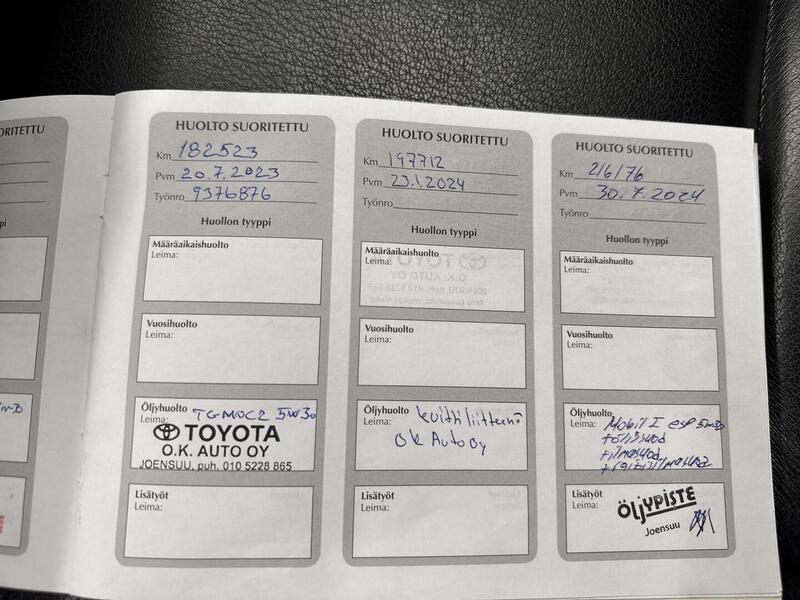 ORITETTU
HUOLTO SUORITETTU
Km 182523
Pvm 20.7.2023
Työnro 9376876
Huollon tyyppi
Määräaikaishuolto
Leima:
Vuosihuolto
Leima:
Öljyhuolto
Leima: TGMOC2 5W30
TOYOTA
O.K. AUTO OY
JOENSUU, puh. 010 5228 865
Lisätyöt
Leima:
HUOLTO SUORITETTU
Km 197712
Pvm 23.1.2024
Työnro
Huollon tyyppi
Määräaikaishuolto
Leima:
Vuosihuolto
Leima:
Öljyhuolto
Leima: kuitti liitteenä
OK Auto Oy
Lisätyöt
Leima:
HUOLTO SUORITETTU
Km 216176
Pvm 30.7.2024
Työnro
Huollon tyyppi
Määräaikaishuolto
Leima:
Vuosihuolto
Leima:
Öljyhuolto
Leima: Mobil 1 esp 5w30
Lisätyöt
Leima:
ÖLJYPISTE
Joensuu